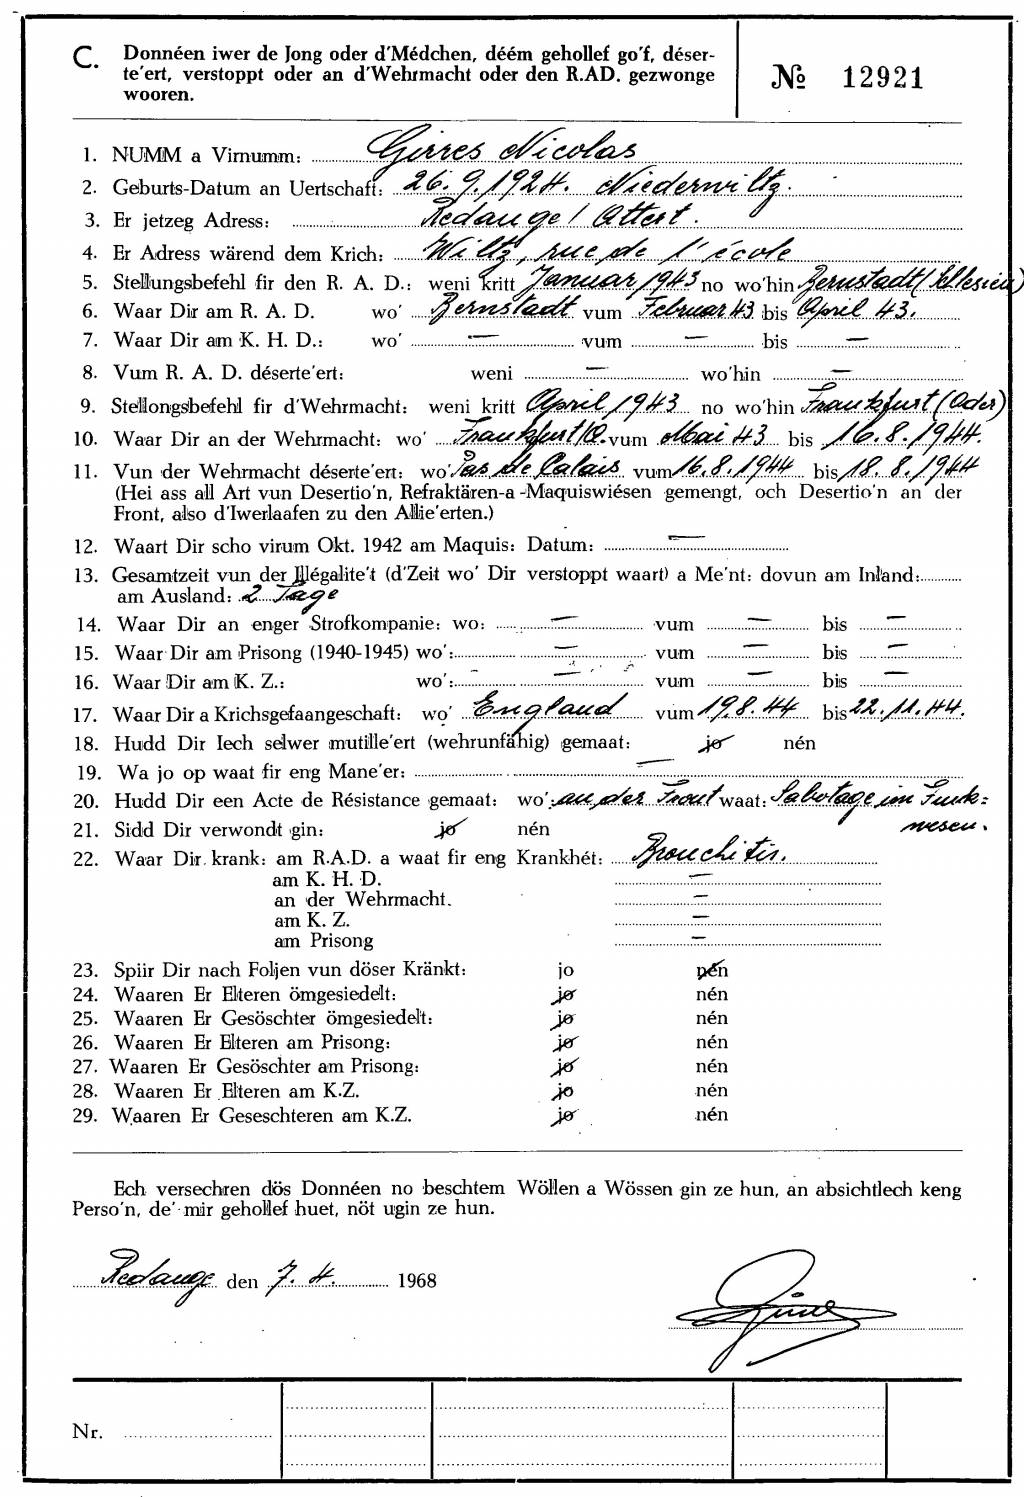 C. Donnéen iwer de Jong oder d'Médchen, déém gehollef go'f, déser-
te'ert, verstoppt oder an d'Wehrmacht oder den R.AD. gezwonge
wooren.
№ 12921
1. NUMM a Virnumm: Girres Nicolas
2. Geburts-Datum an Uertschaft: 26.9.1924. Niederwiltz.
3. Er jetzeg Adress: Redange/Attert.
4. Er Adress wärend dem Krich: Wiltz, rue de l'école
5. Stellungsbefehl fir den R. A. D.: weni kritt Januar 1943 no wo'hin Bernstadt (
6. Waar Dir am R. A. D. wo' Bernstadt vum Februar 43 bis April 43.
7. Waar Dir am K. H. D.: wo' — vum — bis —
8. Vum R. A. D. déserte'ert: weni — wo'hin —
9. Stellongsbefehl fir d'Wehrmacht: weni kritt April 1943 no wo'hin Frankfurt (Oder)
10. Waar Dir an der Wehrmacht: wo' Frankfurt/O. vum Mai 43 bis 16.8.1944.
11. Vun der Wehrmacht déserte'ert: wo' Pas de Calais vum 16.8.1944 bis 18.8.1944
(Hei ass all Art vun Desertio'n, Refraktären-a -Maquiswiésen gemengt, och Desertio'n an der
Front, also d'Iwerlaafen zu den Allie'erten.)
12. Waart Dir scho virum Okt. 1942 am Maquis: Datum: —
13. Gesamtzeit vun der Illégalite't (d'Zeit wo' Dir verstoppt waart) a Me'nt: dovun am Inland:
am Ausland: 2 Tage
14. Waar Dir an enger Strofkompanie: wo: — vum — bis —
15. Waar Dir am Prisong (1940-1945) wo': — vum — bis —
16. Waar Dir am K. Z.: wo': — vum — bis —
17. Waar Dir a Krichsgefaangeschaft: wo' England vum 19.8.44 bis 22.11.44.
18. Hudd Dir Iech selwer mutille'ert (wehrunfähig) gemaat: jo nén
19. Wa jo op waat fir eng Mane'er: —
20. Hudd Dir een Acte de Résistance gemaat: wo': an der Front waat: Sabotage im Funk=
wesen.
21. Sidd Dir verwondt gin: jo nén
22. Waar Dir krank: am R.A.D. a waat fir eng Krankhét: Bronchitis.
am K. H. D. —
an der Wehrmacht. —
am K. Z. —
am Prisong —
23. Spiir Dir nach Foljen vun döser Kränkt: jo nén
24. Waaren Er Elteren ömgesiedelt: jo nén
25. Waaren Er Gesöschter ömgesiedelt: jo nén
26. Waaren Er Elteren am Prisong: jo nén
27. Waaren Er Gesöschter am Prisong: jo nén
28. Waaren Er Elteren am K.Z. jo nén
29. Waaren Er Geseschteren am K.Z. jo nén
Ech versechren dös Donnéen no beschtem Wöllen a Wössen gin ze hun, an absichtlech keng
Perso'n, de' mir gehollef huet, nöt ugin ze hun.
Redange den 7. 4. 1968
Nr.